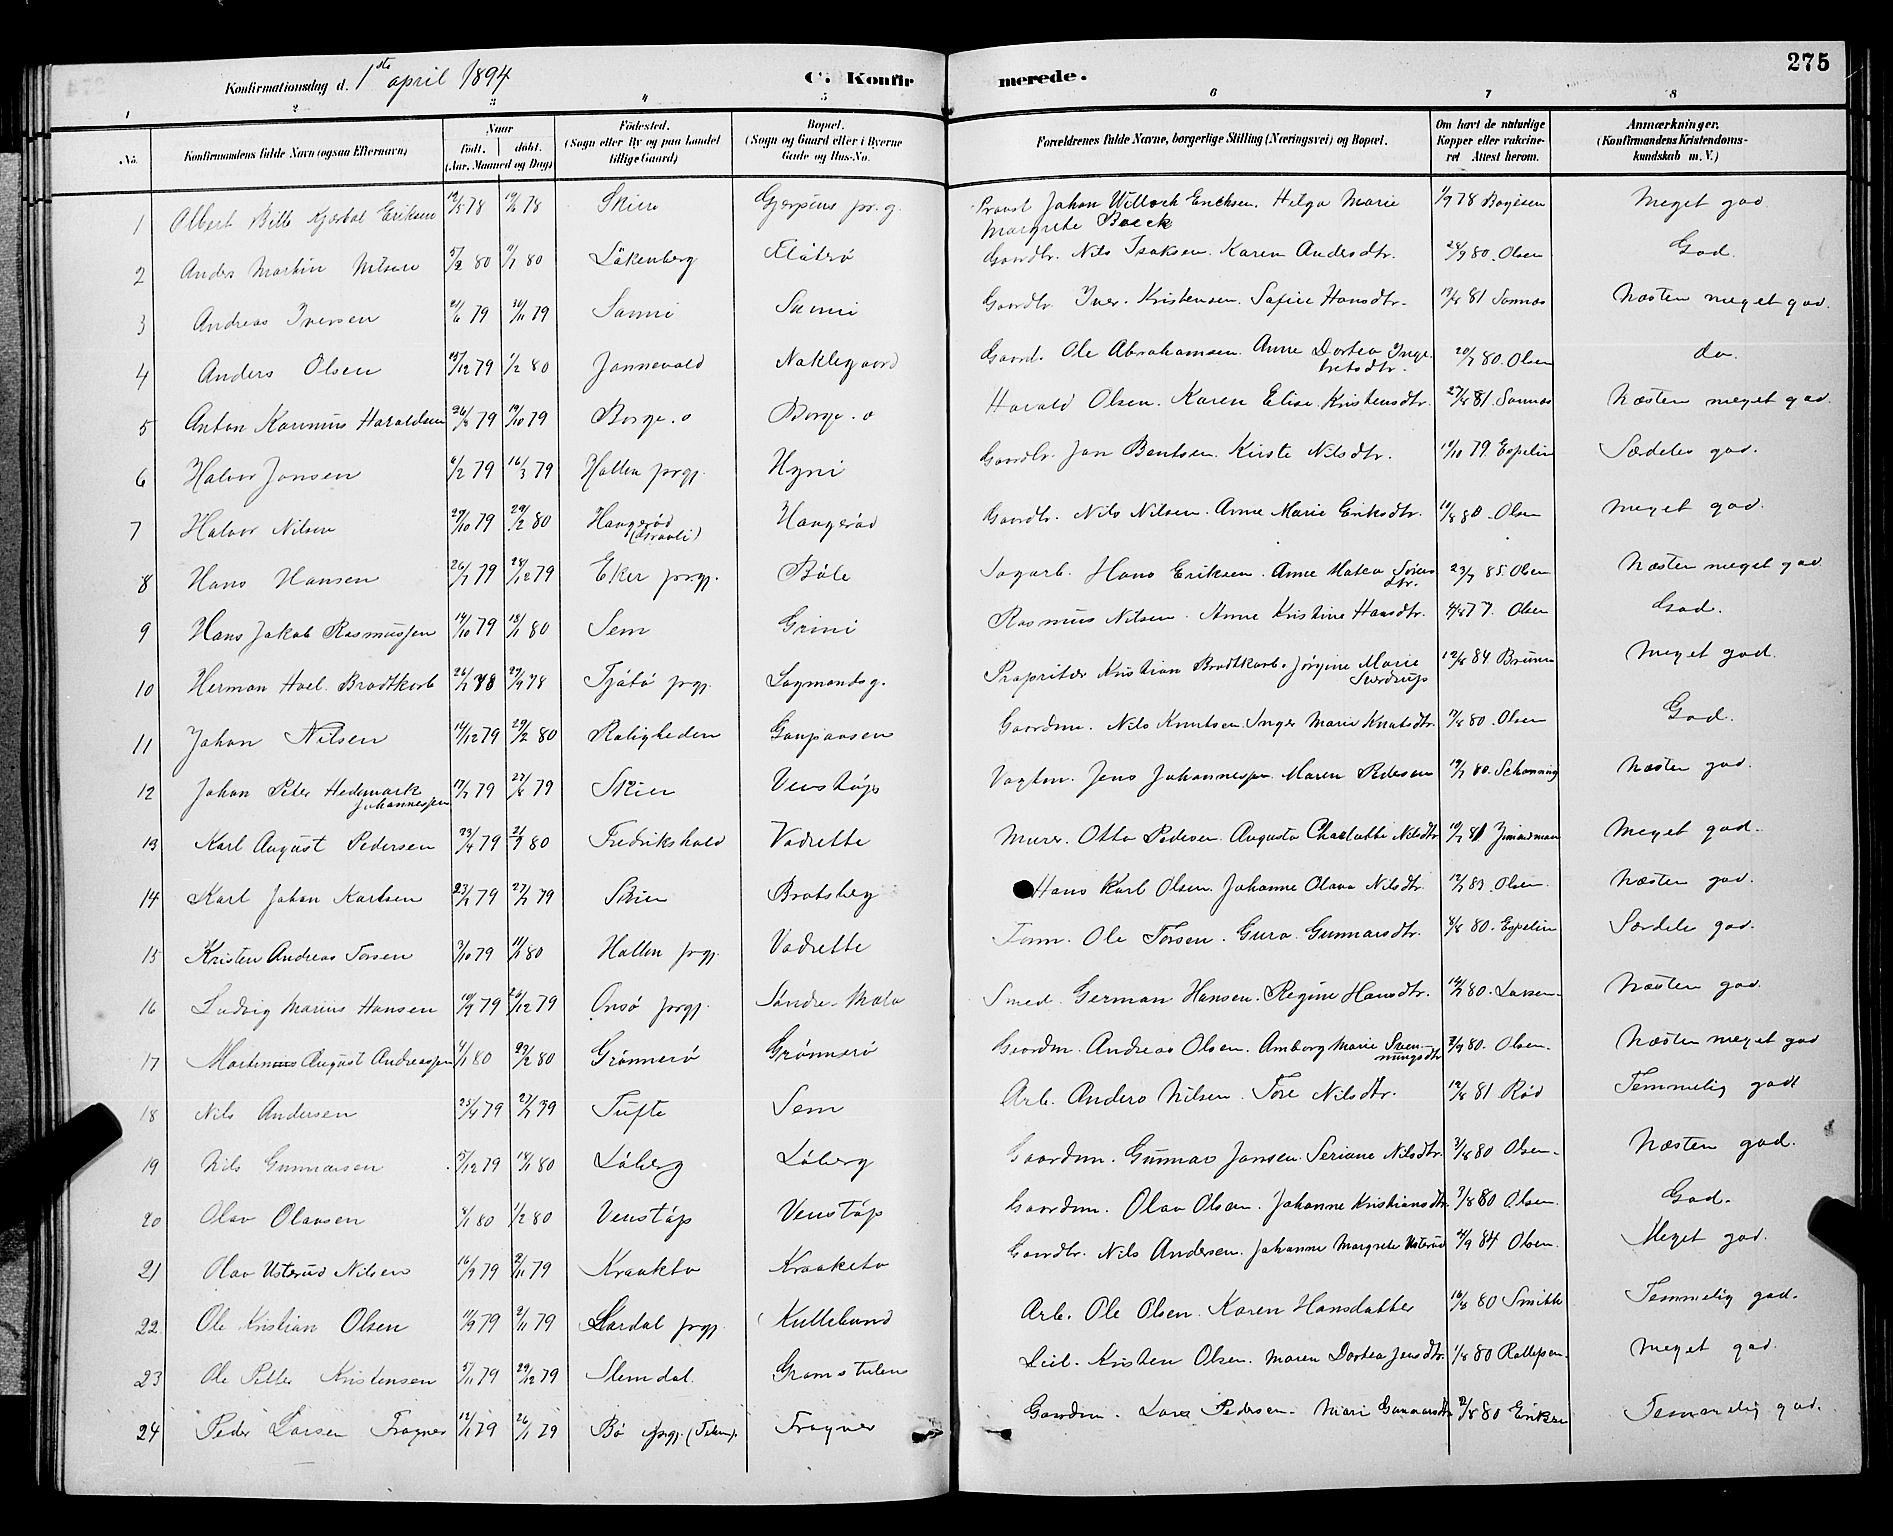 275
Konfirmationsdag d. 1ste april 1894 C. Konfir merede.
1 2 3 4 5 6 7 8
No. Konfirmandens fulde Navn (ogsaa Efternavn) Naar født. døbt. (Aar, Maaned og Dag) Fødested. (Sogn eller By og paa Landet tillige Gaard) Bopæl. (Sogn og Gaard eller i Byerne Gade og Hus-No. Forældrenes fulde Navne, borgerlige Stilling (Næringsvei) og Bopæl. Om havt de naturlige Kopper eller vakcineret Attest herom. Anmærkninger. (Konfirmandens Kristendomskundskab m. V.)
1 Albert Bille Kjørboe Eriksen 78 78 Skien Gjerpens pr.g. Provst Johan Willoch Erichsen. Helga Marie Margrete Boeck 1/9 78 Boyesen Meget god
2 Anders Martin Nilsen 5/2 80 80 Løkenberg Klåterø Gaardbr. Nils Isaksen. Karen Andersdtr. 24/9 80. Olsen God.
3 Andreas Iversen 21/6 79 30/11 79 Sanni Sanni Gaardbr Iver Kristensen. Safie Hansdtr. 81 Sannes Næsten meget god.
4 Anders Olsen 15/12 79 1/2 80 Jønnevald Naklegaard Gaard. Ole Abrahamsen. Anne Dortea Ingebretsdtr. 20/7 80. Olsen do.
5 Anton Karinius Haraldsen 79 19/10 79 Borge. ø Borge. ø Harald Olsen. Karen Elise Kristensdtr. 27/8 81 Sannes Næsten meget god.
6 Halvor Jonsen 6/2 79 16/3 79 Hollen prgj. Hyni Gaardbr. Jon Bentsen. Kirste Nilsdtr. 79. Espelin Særdeles god.
7 Halvor Nilsen 29/10 79 29/2 80 Haugerød Haugerød Gaardbr. Nils Nilsen. Anne Marie Eriksdtr. 80. Olsen meget god.
8 Hans Hansen 26/7 79 28/12 79 Eker prgj. Bøle Sagarb. Hans Eriksen. Anne Matea Sørensdtr. 23/7 85. Olsen Næsten meget god
9 Hans Jakob Rasmussen 14/10 79 18/1 80 Sem Grini Rasmus Nilsen. Anne Kristine Hansdtr. 4/8 77. Olsen God.
10 Herman Hoel Brodtkorb 78 29/9 78 Tjøtø prgj. Lagmandsg. Propritær Kristian Brodtkorb. Jørgine Marie Sverdrup 12/8 84 Bruun Meget god.
11 Johan Nilsen 14/12 79 29/2 80 Roligheden Gaupaasen Gaardm. Nils Knutsen. Inger Marie Knutsdtr. 80. Olsen God.
12 Johan Peter Hedemark Johannessen 79 79 Skien Venstøp Vogtm. Jens Johannessen. Maren Pedersen 80. Schanning Næsten god.
13 Karl August Pedersen 23/4 79 80 Fredrikshald Vadrette Murer. Otto Pedersen. Augusta Charlotte Nilsdtr. 81 Zimmerman Meget god.
14 Karl Johan Karlsen 79 79 Skien Bratsberg Hans Karl Olsen. Johanne Olava Nilsdtr. 83. Olsen. Næsten god.
15 Kristen Andreas Torsen 79 80 Hollen prgj. Vadrette Tom. Ole Torsen. Guro Gunnarsdtr. 80. Espelin Særdeles god.
16 Ludvig Marius Hansen 79 26/12 79 Onsø prgj. Søndre Mæla Smed. German Hansen. Regine Hansdtr. 80. Larsen. Næsten god
17 Martin August Andreassen 80 29/2 80 Grønnerø Grønnerø Gaardm. Andreas Olsen. Amborg Marie Svennungsdtr 80. Olsen. Næsten meget god
18 Nils Andersen 79 79 Tufte Sem Arb. Anders Nilsen. Tore Nilsdtr. 12/8 81 Rød Temmelig godt
19 Nils Gunnarsen 5/12 79 18/1 80 Løberg Løberg Gaardm. Gunnar Jansen. Seriane Nilsdtr. 3/8 80 Olsen. Næsten god.
20 Olav Olausen 80 1/2 80 Venstøp Venstøp Gaardm. Olav Olsen. Johanne Kristiansdtr. 3/8 80 Olsen. God.
21 Olav Usterud Nilsen 16/9 79 2/11 79 Kraakto Kraaketo Gaardbr. Nils Andersen. Johanne Margrete Usterud 84 Olsen. Meget god.
22 Ole Kristian Olsen 79 2/11 79 Lardal prgj. Kullebund Arb. Ole Olsen. Karen Hansdatter 16/8 80 Smith Temmelig god.
23 Ole Petter Kristensen 5/11 79 29/12 79 Slemdal. Gromstulen Leil. Kristen Olsen. Maren Dortea Jensdtr. 80 Meget god.
24 Peder Larsen Frogner 12/1 79 26/1 79 Bø prgj. (Telem). Frogner Gaardm. Lars Pedersen. Mari Gunnarsdtr 80 Eriksen Temmelig god.